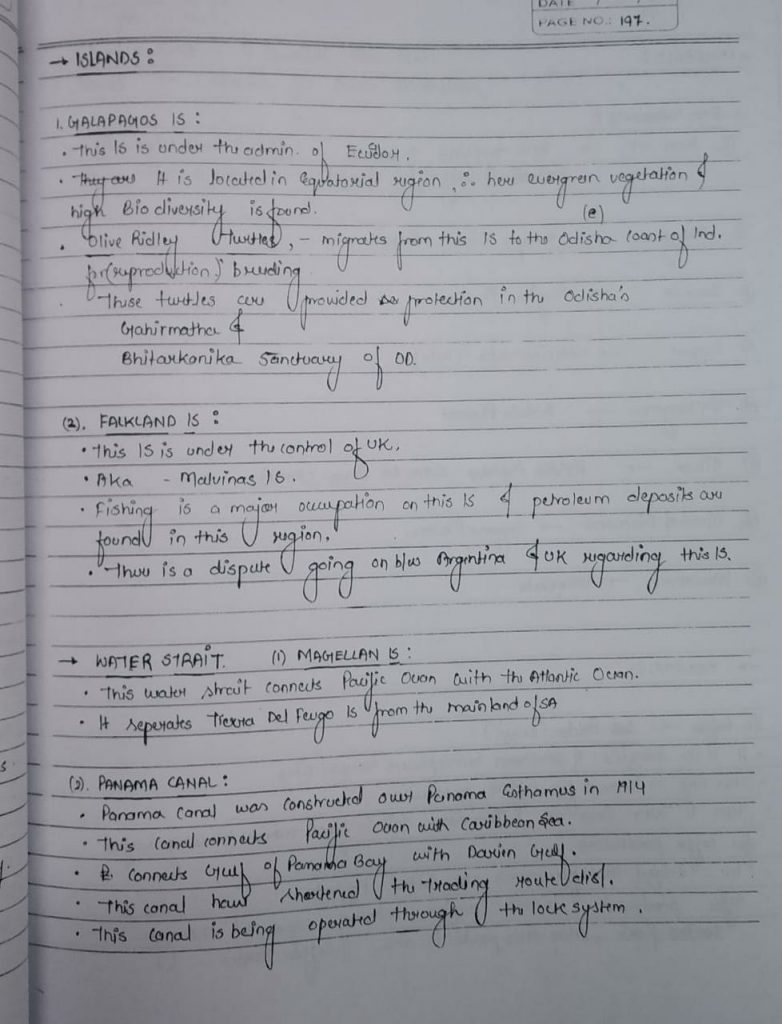 DATE / /
PAGE NO.: 197.
→ ISLANDS :
1. GALAPAGOS IS :
• This IS is under the admin. of Ecudor.
• They are It is located in equatorial region, ∴ here evergreen vegetation &
high Bio diversity is found.
(e)
• Olive Ridley turtles, - migrates from this IS to the Odisha Coast of Ind.
for (reproduction) breeding
• These turtles are provided protection in the Odisha's
Gahirmatha &
Bhitarkanika Sanctuary of OD.
(2). FALKLAND IS :
• This IS is under the control of UK.
• Aka - Malvinas IS.
• Fishing is a major occupation on this IS & petroleum deposits are
found in this region.
• There is a dispute going on b/w Argentina & UK regarding this IS.
→ WATER STRAIT. (1) MAGELLAN IS :
• This water strait connects Pacific Ocean with the Atlantic Ocean.
• It seperates Tierra Del Feugo IS from the mainland of SA
(2). PANAMA CANAL :
• Panama Canal was constructed over Panama Gothamus in 1914
• This Canal connects Pacific Ocean with Caribbean Sea.
• Connects Gulf of Panama Bay with Darien Gulf.
• This canal have shortened the trading route dist.
• This Canal is being operated through the lock system.